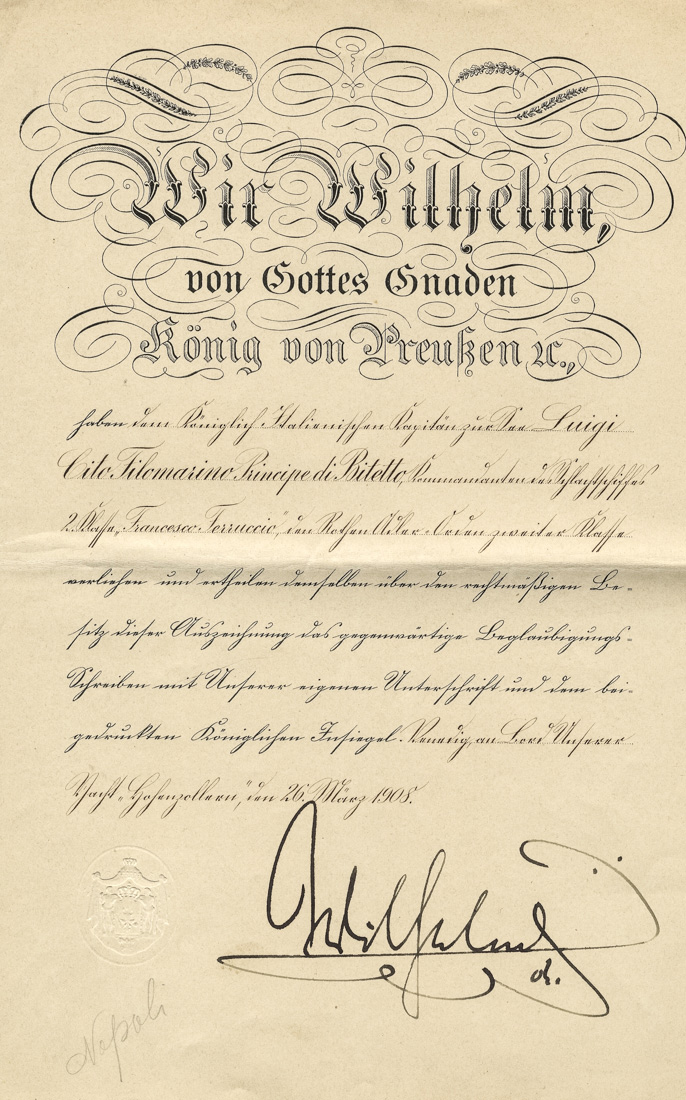 Wir Wilhelm,
von Gottes Gnaden
König von Preußen ꝛc.,
haben dem Königlich Italienischen Kapitän zur See Luigi
Cito Filomarino Principe di Bitetto, Kommandanten des Schlachtschiffes
2. Klasse „Francesco Ferruccio“, den Rothen Adler-Orden zweiter Klasse
verliehen und ertheilen demselben über den rechtmäßigen Be-
sitz dieser Auszeichnung das gegenwärtige Beglaubigungs-
Schreiben mit Unserer eigenen Unterschrift und dem bei-
gedruckten Königlichen Insiegel. Venedig, an Bord Unserer
Yacht „Hohenzollern“, den 26. März 1908.
Wilhelm
Napoli